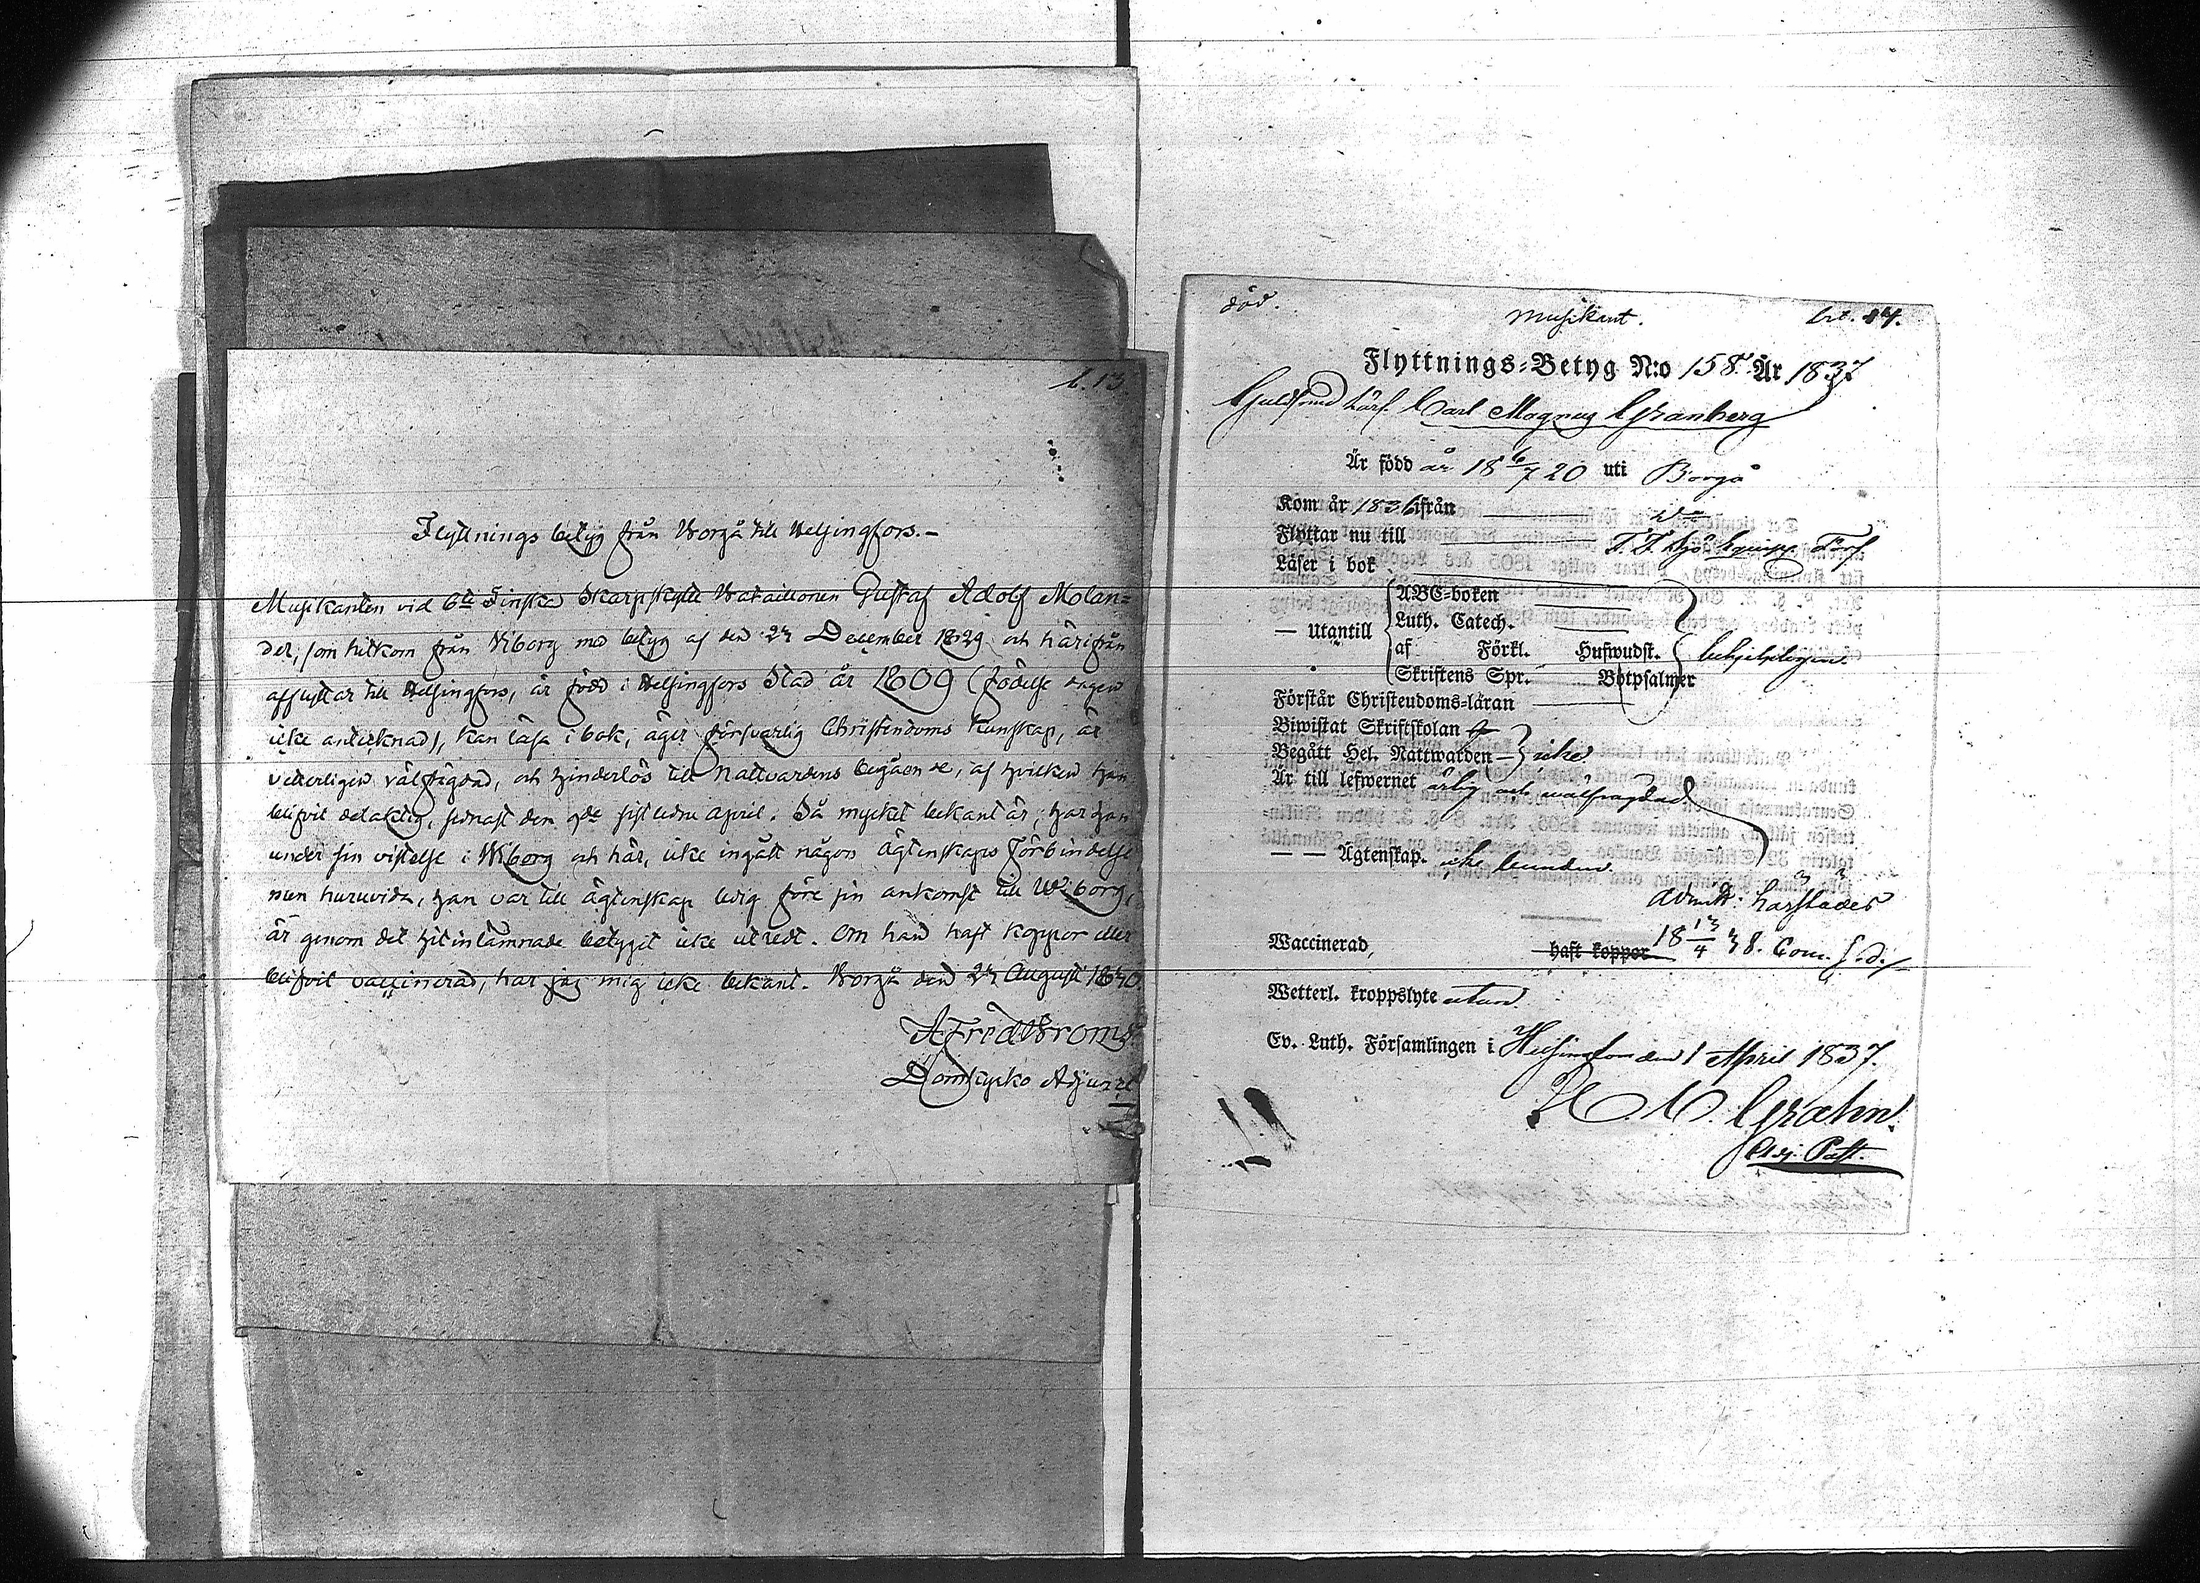 l. 13.
Flyttnings betyg från Borgå till Helsingfors.-
Musikanten vid 6te Finska Skarpskytte Bataillonen Gustaf Adolf Molan=
der, som hitkom från Wiborg med betyg af den 24 December 1829 och härifrån
afflyttar till Helsingfors, är född i Helsingfors Stad år 1809 (födelse dagen
icke antecknad), kan läsa i bok, äger försvarlig Christendoms kunskap, är
veterligen välfrägdad, och hinderlös till Nattvardens begående, af hvilken han
blifvit delaktig, sednast den 9de sistledne April. Så mycket bekant är, har han
under sin vistelse i Wiborg och här, icke ingått någon Ägtenskaps Förbindelse
men huruvida, han var till ägtenskap ledig före sin ankomst till Wiborg,
är genom det hit inlämnade betyget icke utredt. Om han haft koppor eller
blifvit vaccinerad, har jag mig icke bekant. Borgå den 24 Augusti 1830
A Fred Broms
Domkyrko Adjunct
död. Musikant. Litt. 14.
Flyttnings-Betyg N:o 158. År 1837
Guldsmed Lärl. Carl Magnus Granberg
Är född år 18 6/7 20 uti Borgå
Kom år 1836 från Do
Flyttar nu till
Läser i bok
ABC-boken
— Utantill Luth. Catech.
af Förkl. Hufwudst. behjelpligen.
Skriftens Spr. Botpsalmer
Förstår Christendoms-läran
Biwistat Skriftskolan
Begått Hel. Nattwarden — icke
Är till lefwernet ärlig och wälfrägdad
— — Ägtenskap. icke bunden.
admitt.
Waccinerad, haft koppor 18 13/4 38. Com. s. d.
Wetterl. kroppslyte utan
Ev. Luth. Församlingen i Helsingfors den 1 April 1837.
Græhn.
Adj. Past.